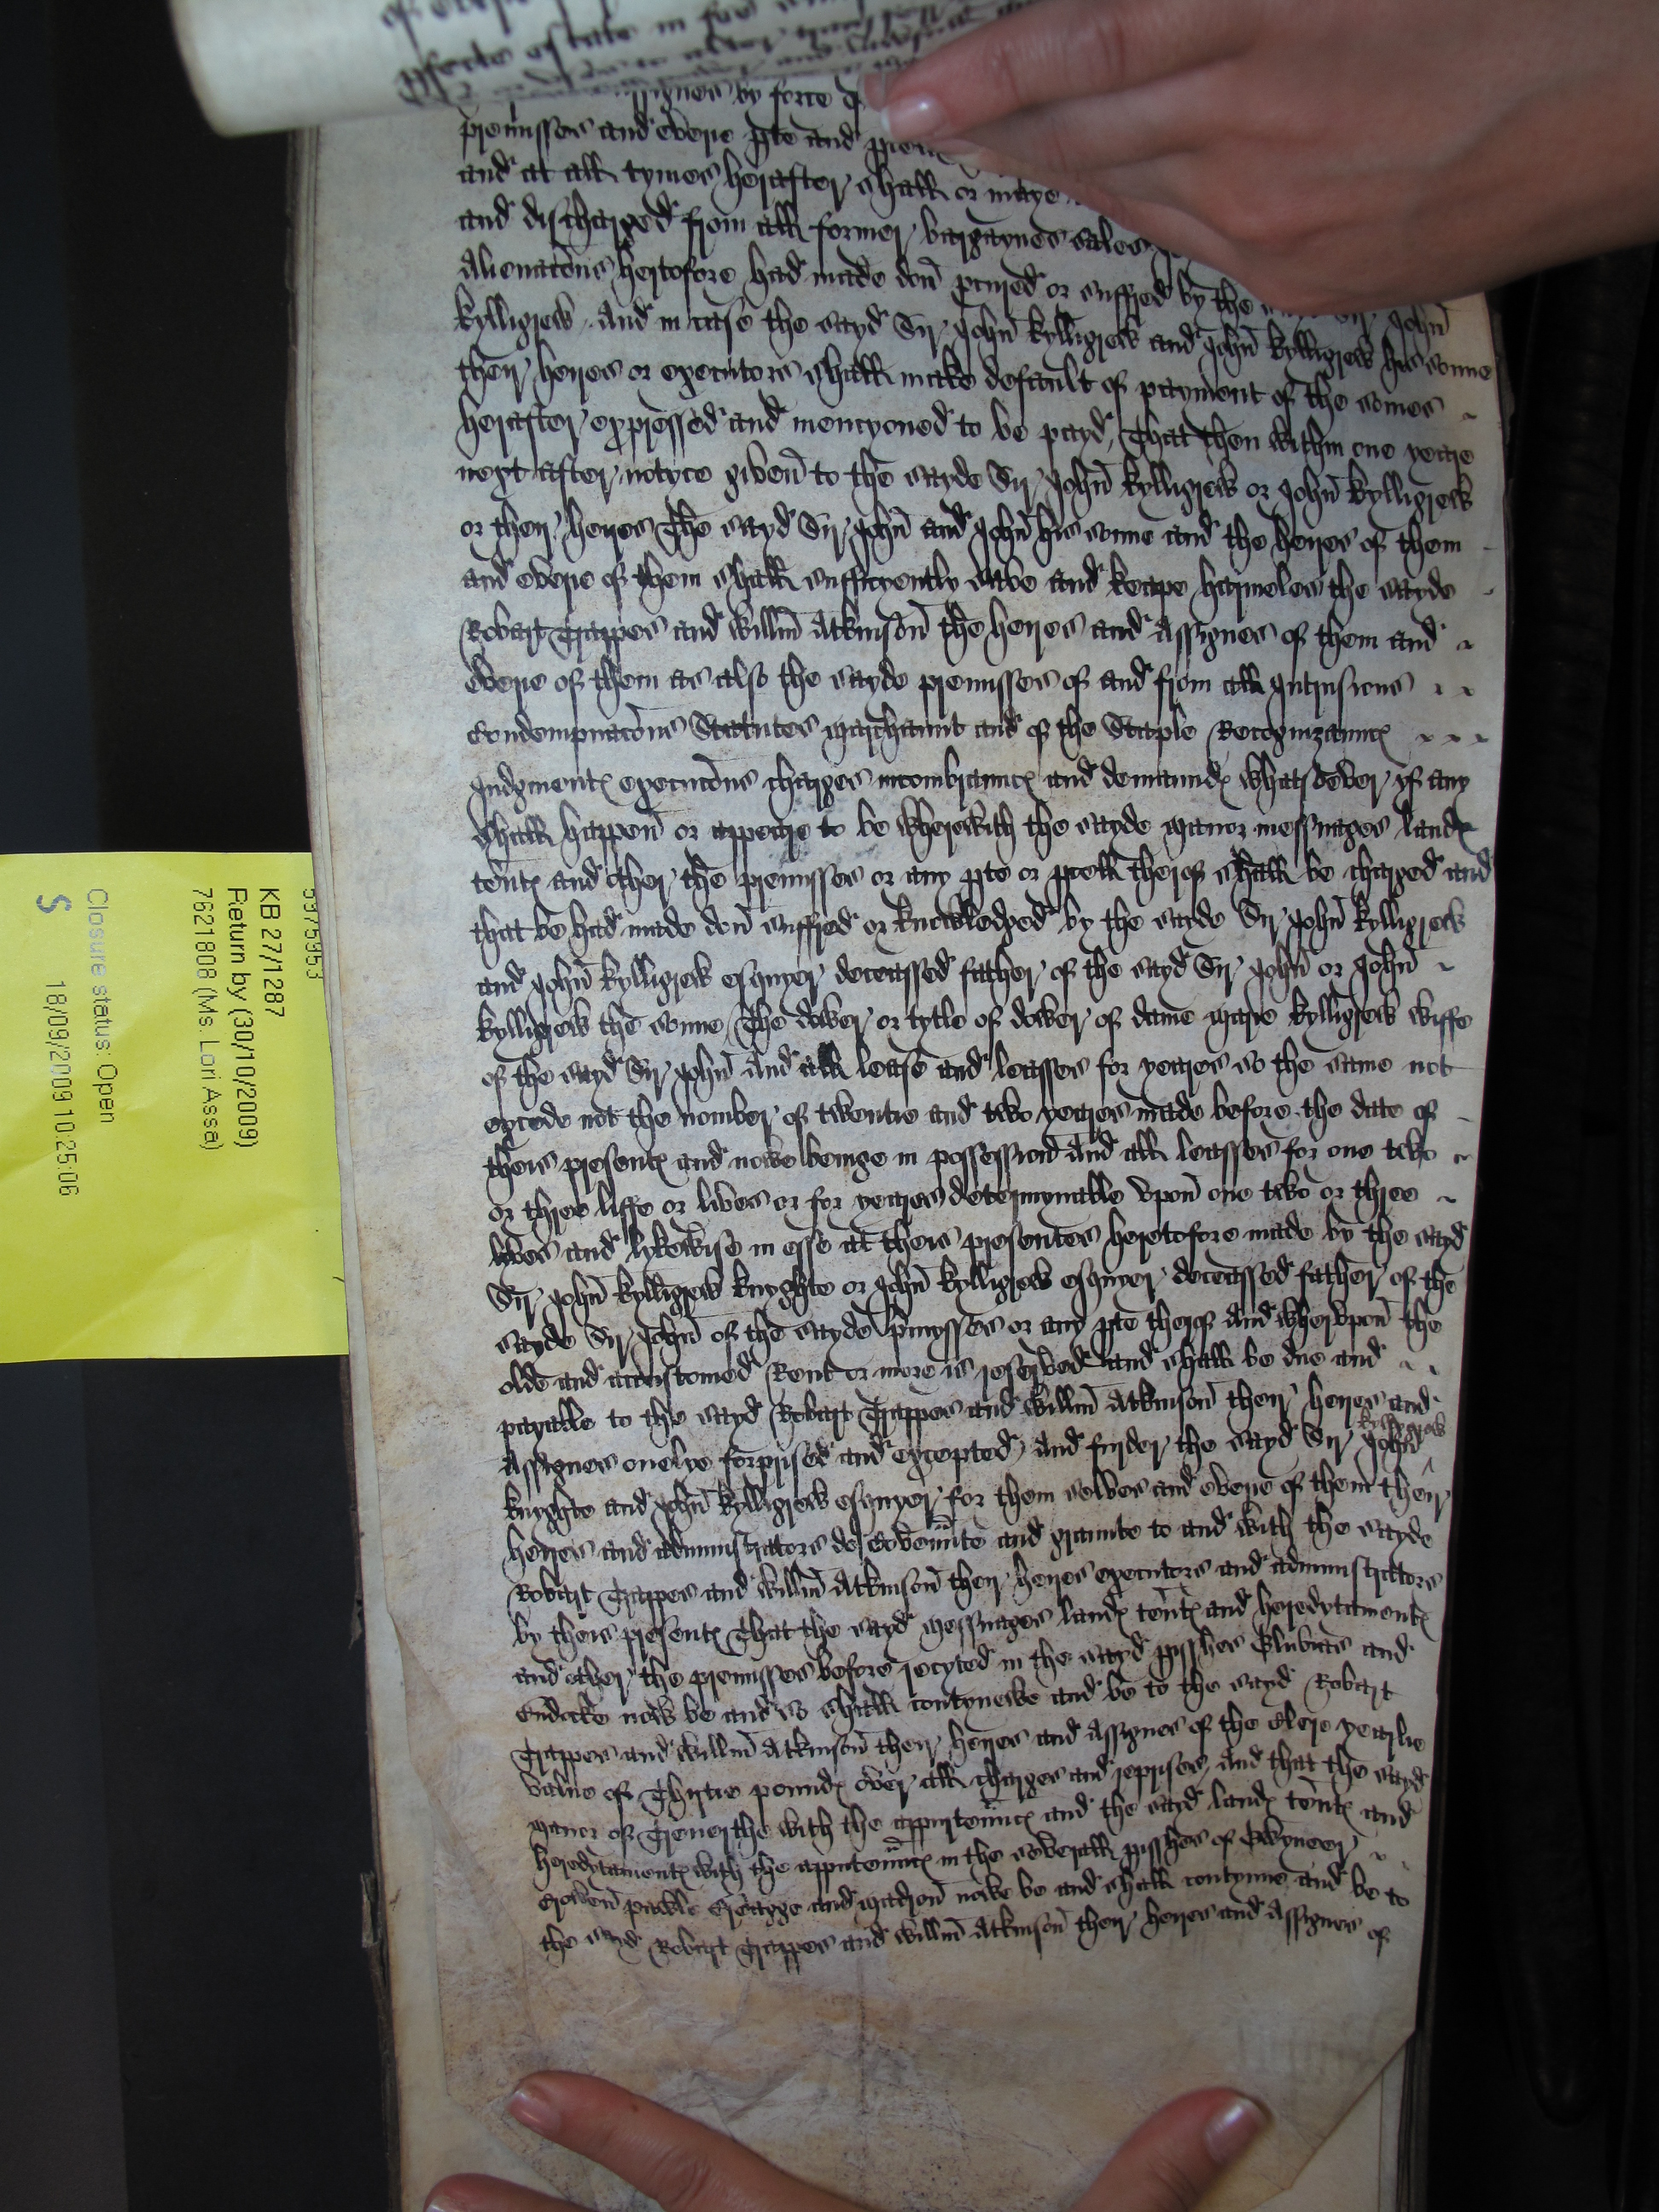 of
pfecte estate in fee
Assignes by force
premisses and everie pte and
and at all tymes herafter shall or maye
and discharged from all former bargaynes sales
Alienacons hertofore had made don pcured or suffred by the Sir John
Kylligrew And in case the sayd Sir John Kylligrew and John Kylligrew his sonne
their heires or executors shall make default of payment of the somes
herafter expressed and mencyoned to be payd, That then within one yeare
next after notyce given to the sayde Sir John Kylligrew or John Kylligrew
or their heires The sayd Sir John and John his sonne and the heires of them
and everie of them shall sufficyently save and keape harmeles the sayde
Robart Trappes and Willm Atkinson the heires and Assignes of them and
everie of them as also the sayde premisses of and from all Intrusions
Condempnacons Statutes marchaunt and of the Staple Recognizaunc
Judgment execucons charges incombraunc and demaund whatsoever yf any
shall happen or appeare to be wherwith the sayde manor messuages land
tent and other the premisses or any pte or pcell therof shall be charged and
that be had made don suffred or knowledged by the sayde Sir John Kylligrew
and John Kylligrew esquyer deceassed father of the sayd Sir John or John
Kylligrew the sonne, The dower or tytle of dower of dame Marie Kylligrew wiffe
of the sayd Sir John And all lease and leasses for yeares so the same not
excede not the nomber of twentie and two yeares made before the date of
theis present and nowe beinge in possession And all leasses for one two
or three liffe or lives or for yeares determynable upon one two or three
lives and lykewise in esse at theis presentes heretofore made by the sayd
Sir John Kylligrew knyghte or John Kylligrew esquyer deceassed father of the
sayde Sir John of the sayde pmysses or any pte therof And wherupon the
olde and accustomed Rent or more is reserved and shall be due and
payable to the sayd Robart Trappes and Willm Atkinson their heires and
Assignes onelye forprised and excepted, And furder the sayd Sir John Kylligrew
knyghte and John Kylligrew esquyer for them selves and everie of them their
heires and administrators do Covennte and graunte to and with the sayde
Robart Trappes and Willm Atkinson their heires executors and administrators
by theis present That the sayd messuages land tent and heredytament
and other the premisses before recyted in the sayd pisshes and
now be and so shall contynewe and be to the sayd Robart
Trappes and Willm Atkinson their heires and Assignes of the clere yearlie
value of Thyrtie pound over all charges and reprises, And that the sayd
manor of with the appurtennc and the sayd land tent and
heredytament with the appurtennc in the severall pisshes of
and nowe be and shall contynue and be to
the sayd Robart Trappes and Willm Atkinson their heires and Assignes of
59759953
KB 27/1287
Return by (30/10/2009)
7621808 (Ms. Lori Assa)
Closure status: Open
18/09/2009 10:25:06
S